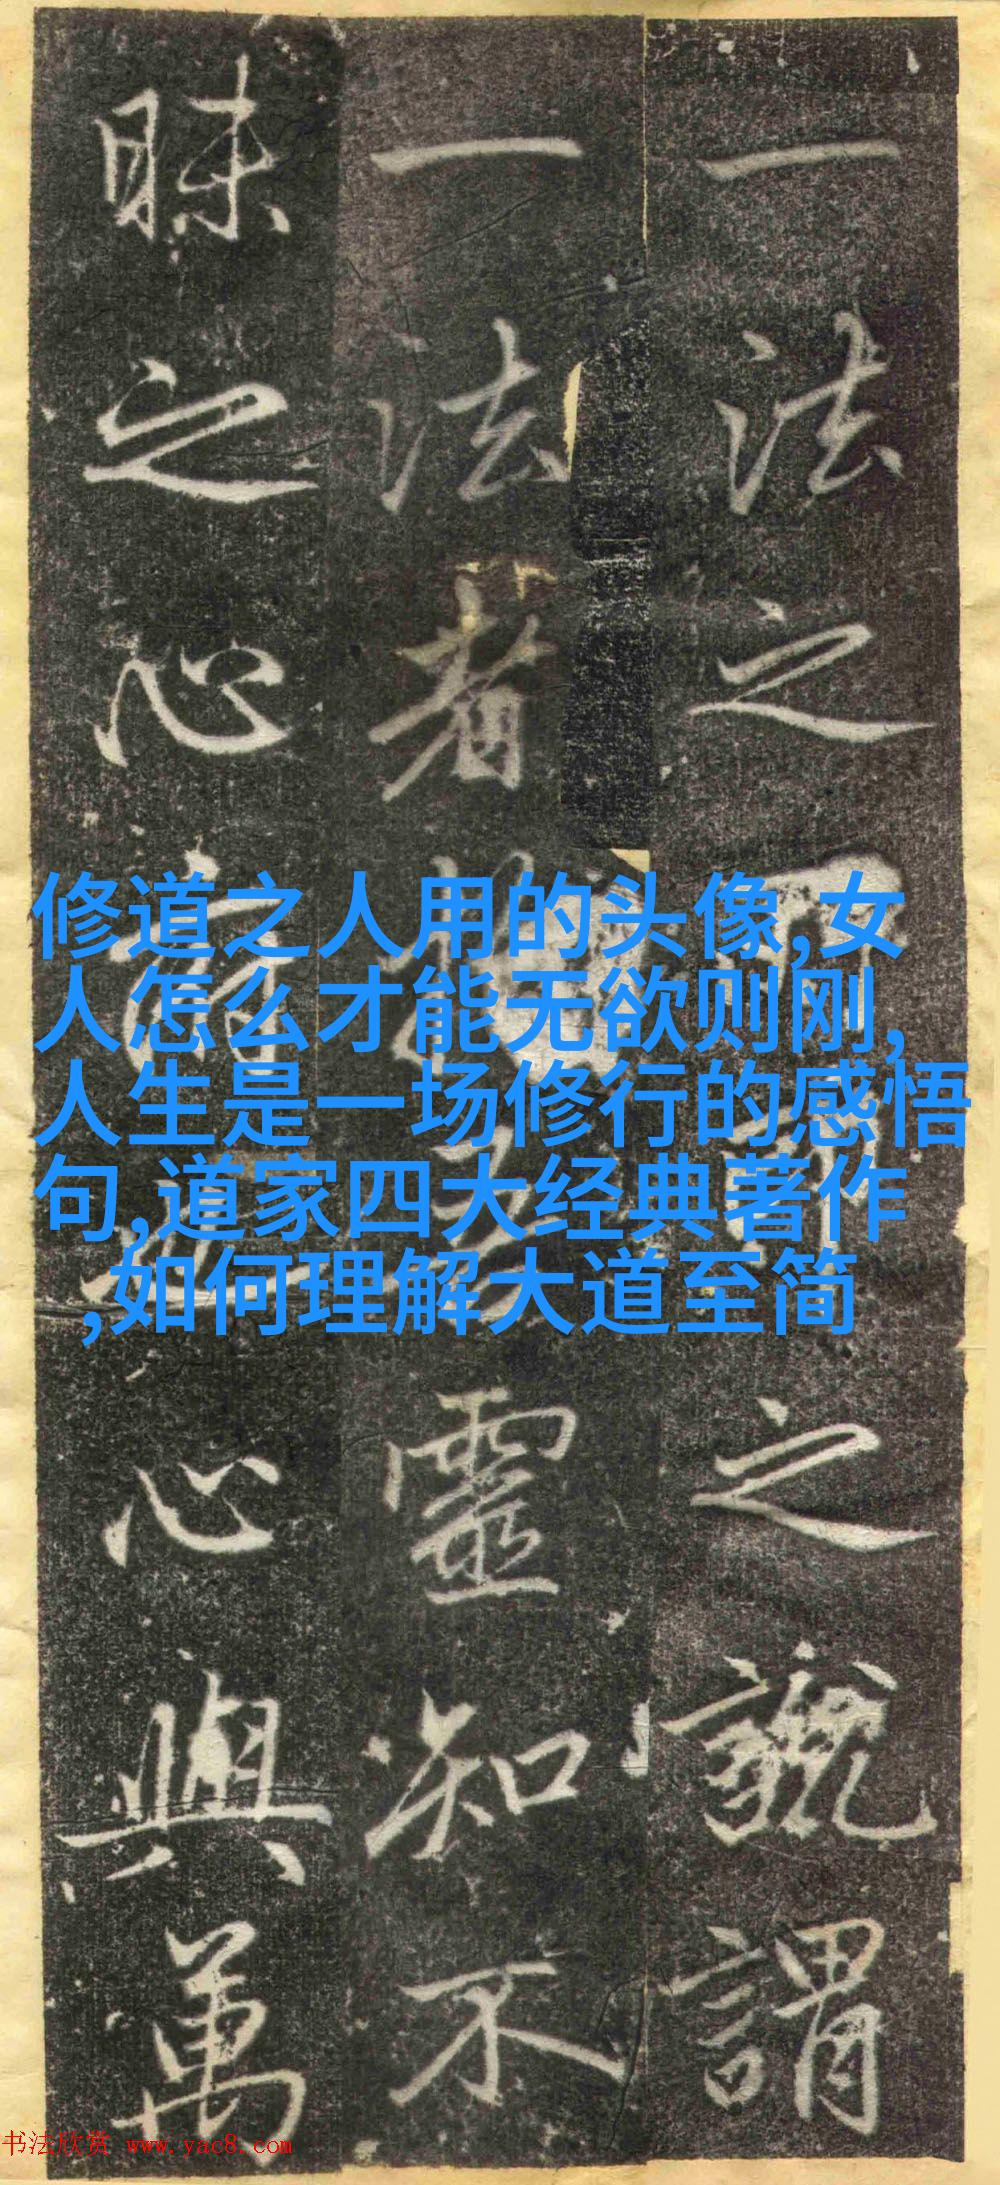 一法之之謂
一法者靈知不
昧之心心與萬
修道之人用的头像,女
人怎么才能无欲则刚,
人生是一场修行的感悟
句,道家四大经典著作
,如何理解大道至简
书法欣赏 www.yac8.com